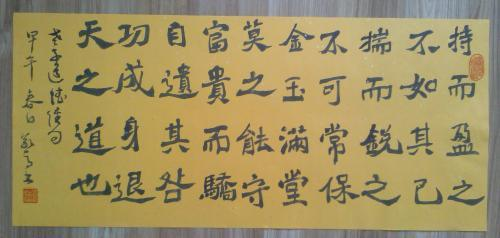 持而盈之
不如其已
揣而鋭之
不可常保
金玉滿堂
莫之能守
富貴而驕
自遺其咎
功成身退
天之道也
老子道德經句
甲午春日